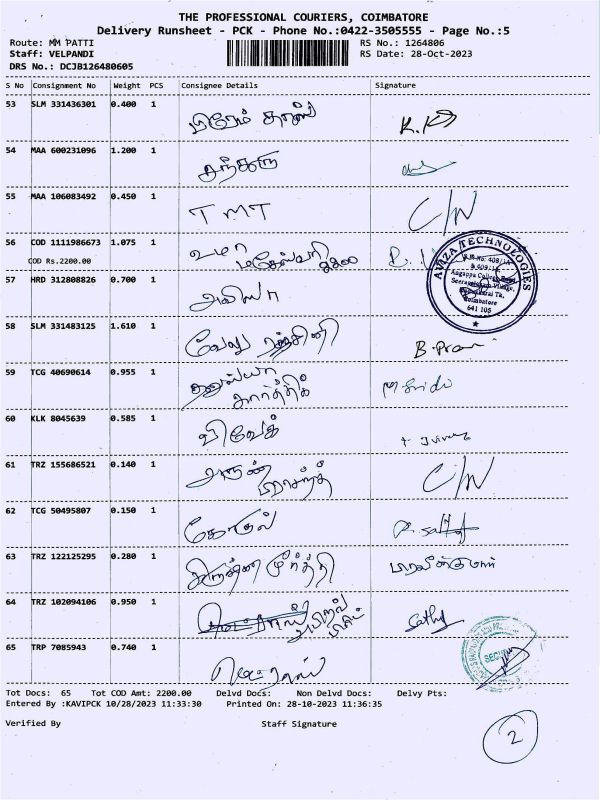 THE PROFESSIONAL COURIERS, COIMBATORE
Delivery Runsheet - PCK - Phone No.:0422-3505555 - Page No.:5
Route: MM PATTI
RS No.: 1264806
Staff: VELPANDI
RS Date: 28-Oct-2023
DRS No.: DCJB126480605
S No Consignment No Weight PCS Consignee Details Signature
53 SLM 331436301 0.400 1 பிரேம் தாஸ்
54 MAA 600231096 1.200 1
55 MAA 106083492 0.450 1 TMT C/N
56 COD 1111986673 1.075 1 உமா
COD Rs.2200.00 மகேஸ்வரி
57 HRD 312808826 0.700 1
AVIZA TECHNOLOGIES
Coimbatore
641 105
58 SLM 331483125 1.610 1 வேலு ரஞ்சினி
59 TCG 40690614 0.955 1
கார்த்திக்
60 KLK 8045639 0.585 1 விவேக்
61 TRZ 155686521 0.140 1 அருண் C/N
பிரசாந்த்
62 TCG 50495807 0.150 1 கோகுல்
63 TRZ 122125295 0.280 1 கிருஷ்ண மூர்த்தி
64 TRZ 102094106 0.950 1 Sathy
65 TRP 7085943 0.740 1
Tot Docs: 65 Tot COD Amt: 2200.00 Delvd Docs: Non Delvd Docs: Delvy Pts:
Entered By :KAVIPCK 10/28/2023 11:33:30 Printed On: 28-10-2023 11:36:35
Verified By Staff Signature
2